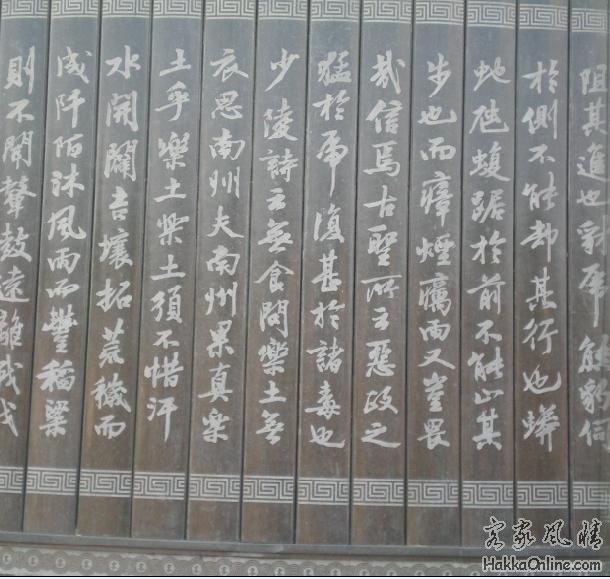 阻其進也豺虎熊豹伺
於側不能却其行也蟒
虵虺蝮踞於前不能止其
步也而瘴煙癘雨又豈畏
哉信焉古聖所云惡政之
猛於虎復甚於諸毒也
少陵詩云無食問樂土無
衣思南州夫南州果真樂
土乎樂土樂土須不惜汗
水開闢吉壤拓荒穢而
成阡陌沐風雨而豐稻粱
則不聞鼙鼓遠離戰戈
客家風情
HakkaOnline.com